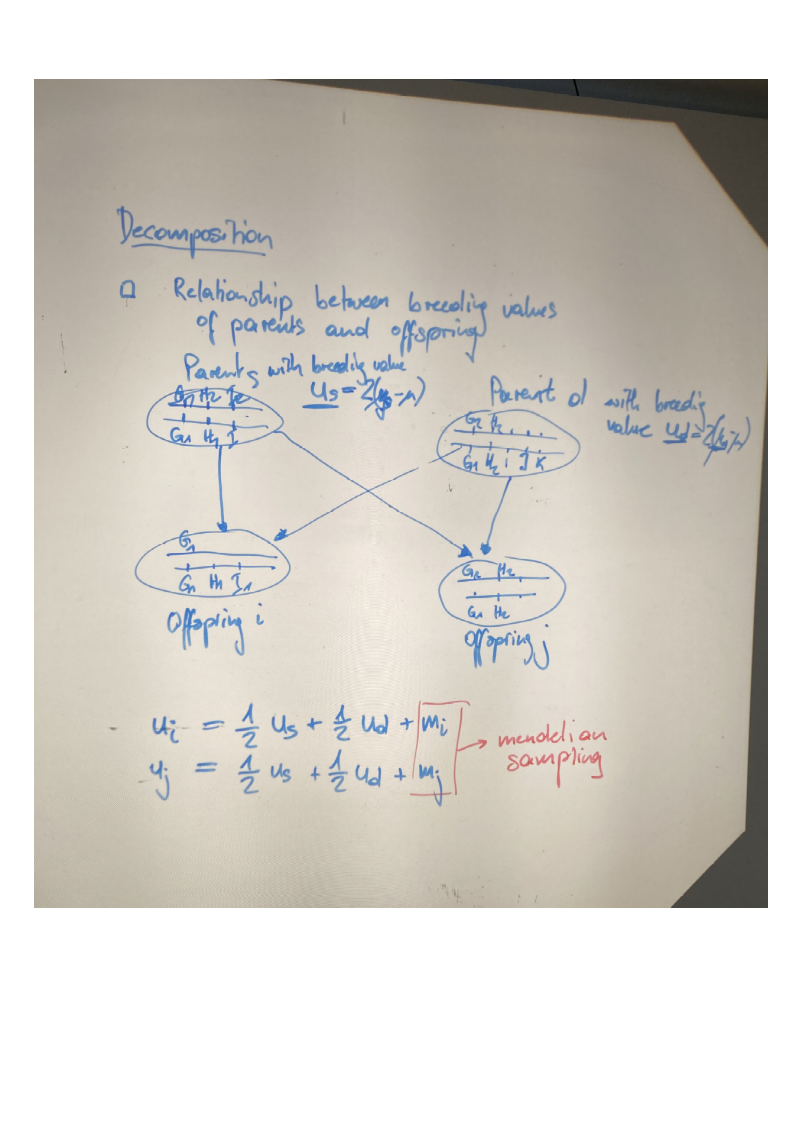 Decomposition
Relationship between breeding values
of parents and offspring
Parent s with breeding value
us = 2(ys-μ)
Parent d with breedig
value ud = 2(yd-μ)
G2 H2 I2
G1 H1 I
G2 H2
G1 H2 i J K
G1
G1 H1 I1
G2 H2
G1 H2
Offspring i
Offspring j
ui = 1/2 us + 1/2 ud + mi
uj = 1/2 us + 1/2 ud + mj
mendelian
sampling